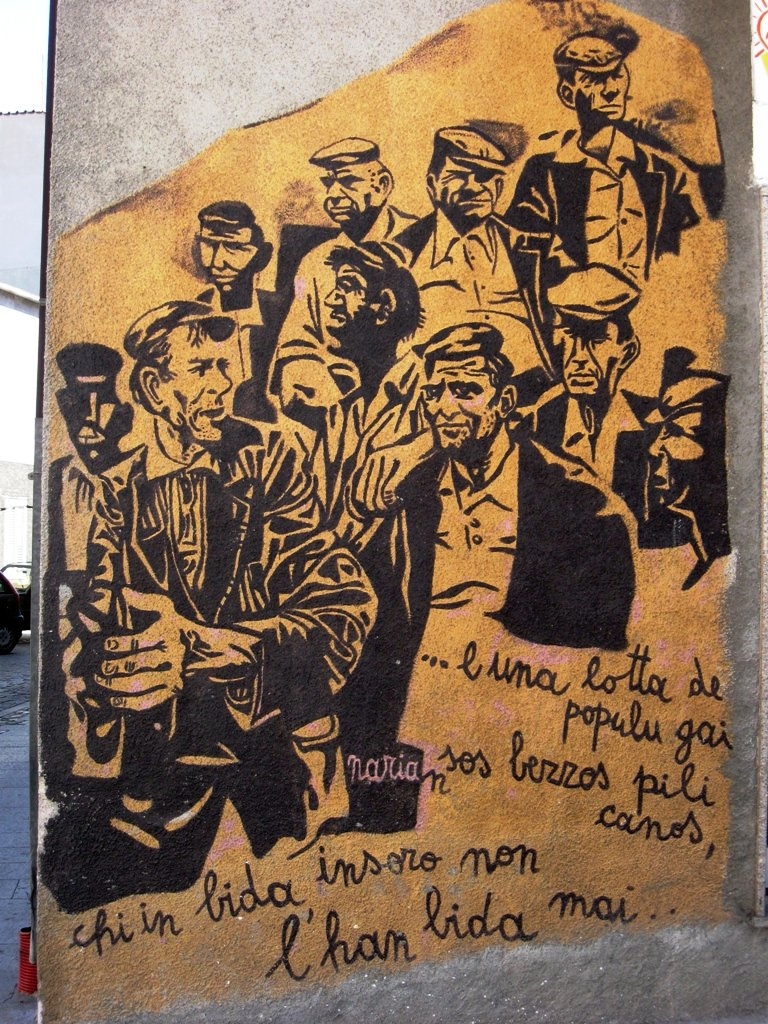 ...e una lotta de
populu gai
narian sos bezzos pili
canos,
chi in bida insoro non
l'han bida mai...